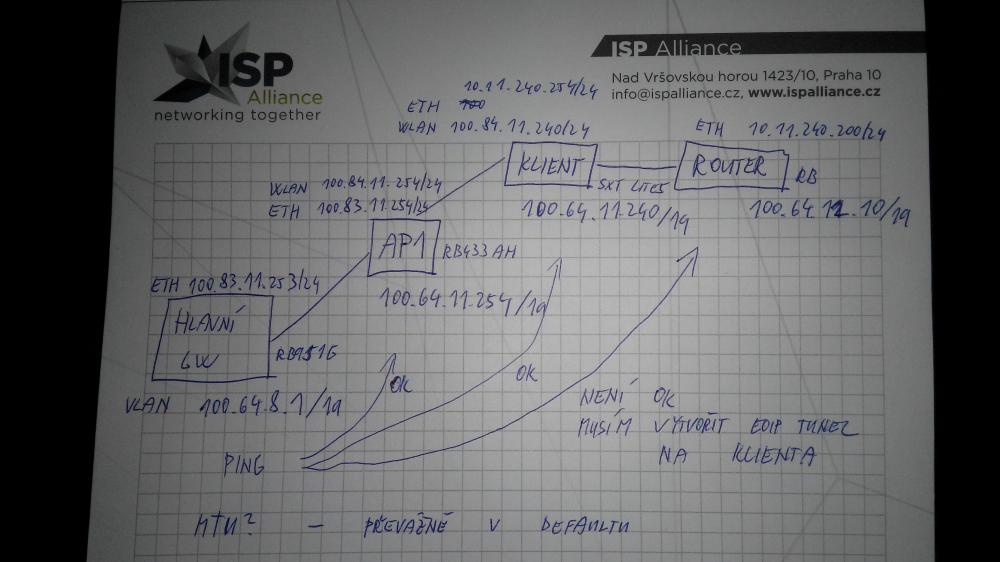 ISP
Alliance
networking together
ISP Alliance
Nad Vršovskou horou 1423/10, Praha 10
info@ispalliance.cz, www.ispalliance.cz
10.11.240.254/24
ETH
VLAN 100.84.11.240/24
ETH 10.11.240.200/24
KLIENT
ROUTER
RB
SXT LITE5
100.64.11.240/19
100.64.12.10/19
VLAN 100.84.11.254/24
ETH 100.83.11.254/24
AP1
RB433AH
100.64.11.254/19
ETH 100.83.11.253/24
HLAVNÍ
GW
RB951G
VLAN 100.64.8.1/19
OK
OK
NENÍ OK
MUSÍM VYTVOŘIT EOIP TUNEL
NA KLIENTA
PING
MTU? – PŘEVÁŽNĚ V DEFAULTU